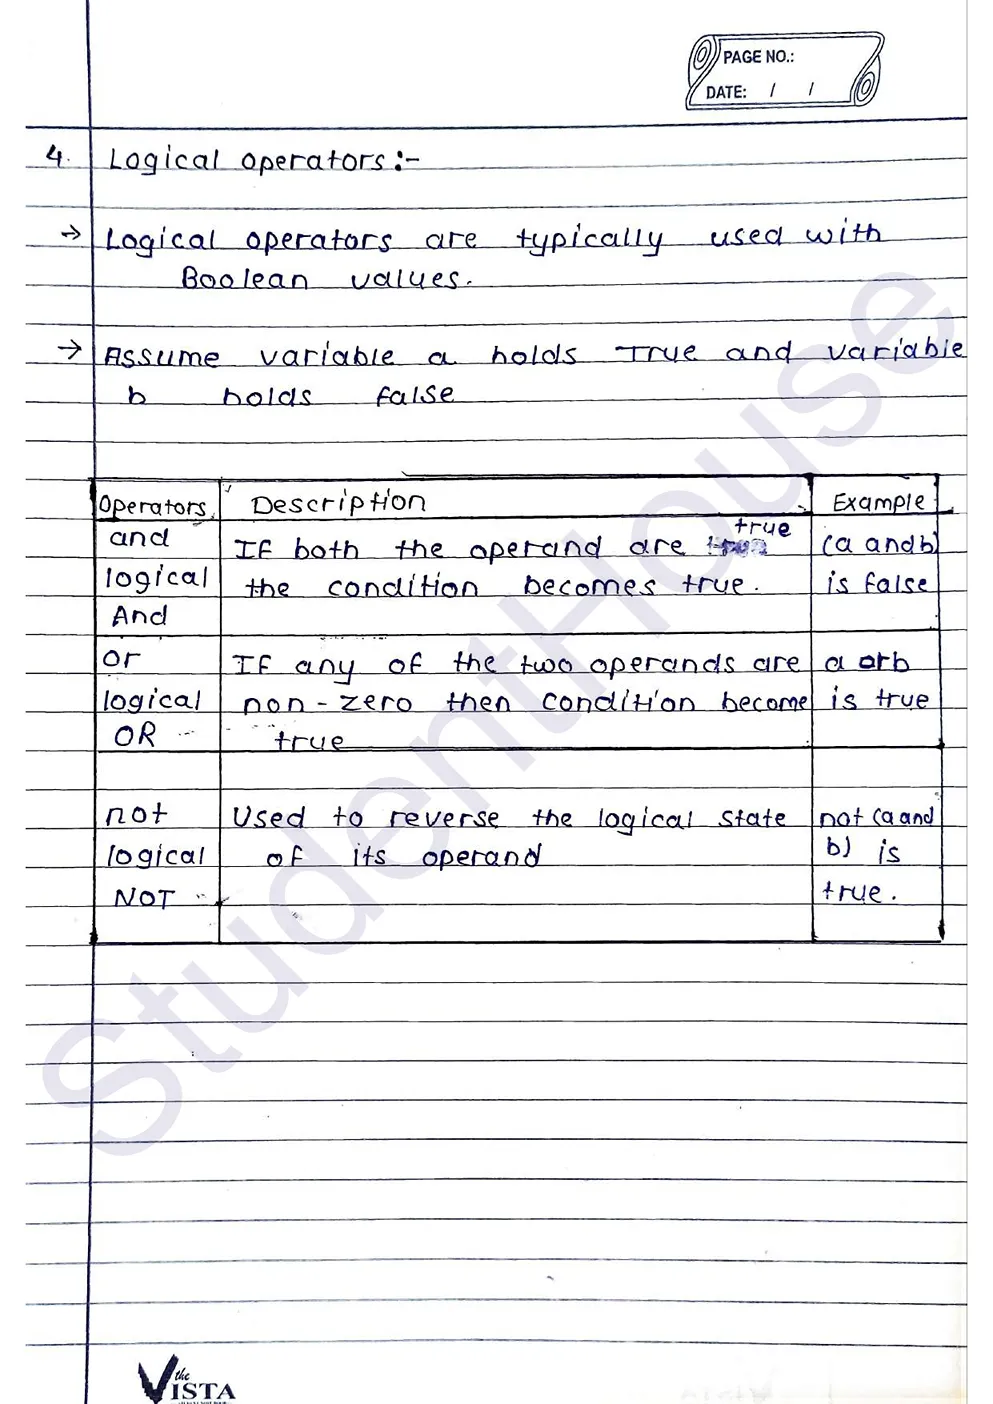 PAGE NO.:
DATE: / /
4. Logical operators :-
→ Logical operators are typically used with
Boolean values.
→ Assume variable a holds True and variable
b holds false
Operators Description Example
and
logical
And
If both the operand are true
the condition becomes true.
(a and b)
is false
or
logical
OR
If any of the two operands are
non-zero then condition become
true
a or b
is true
not
logical
NOT
Used to reverse the logical state
of its operand
not (a and
b) is
true.
StudentHouse
the
VISTA